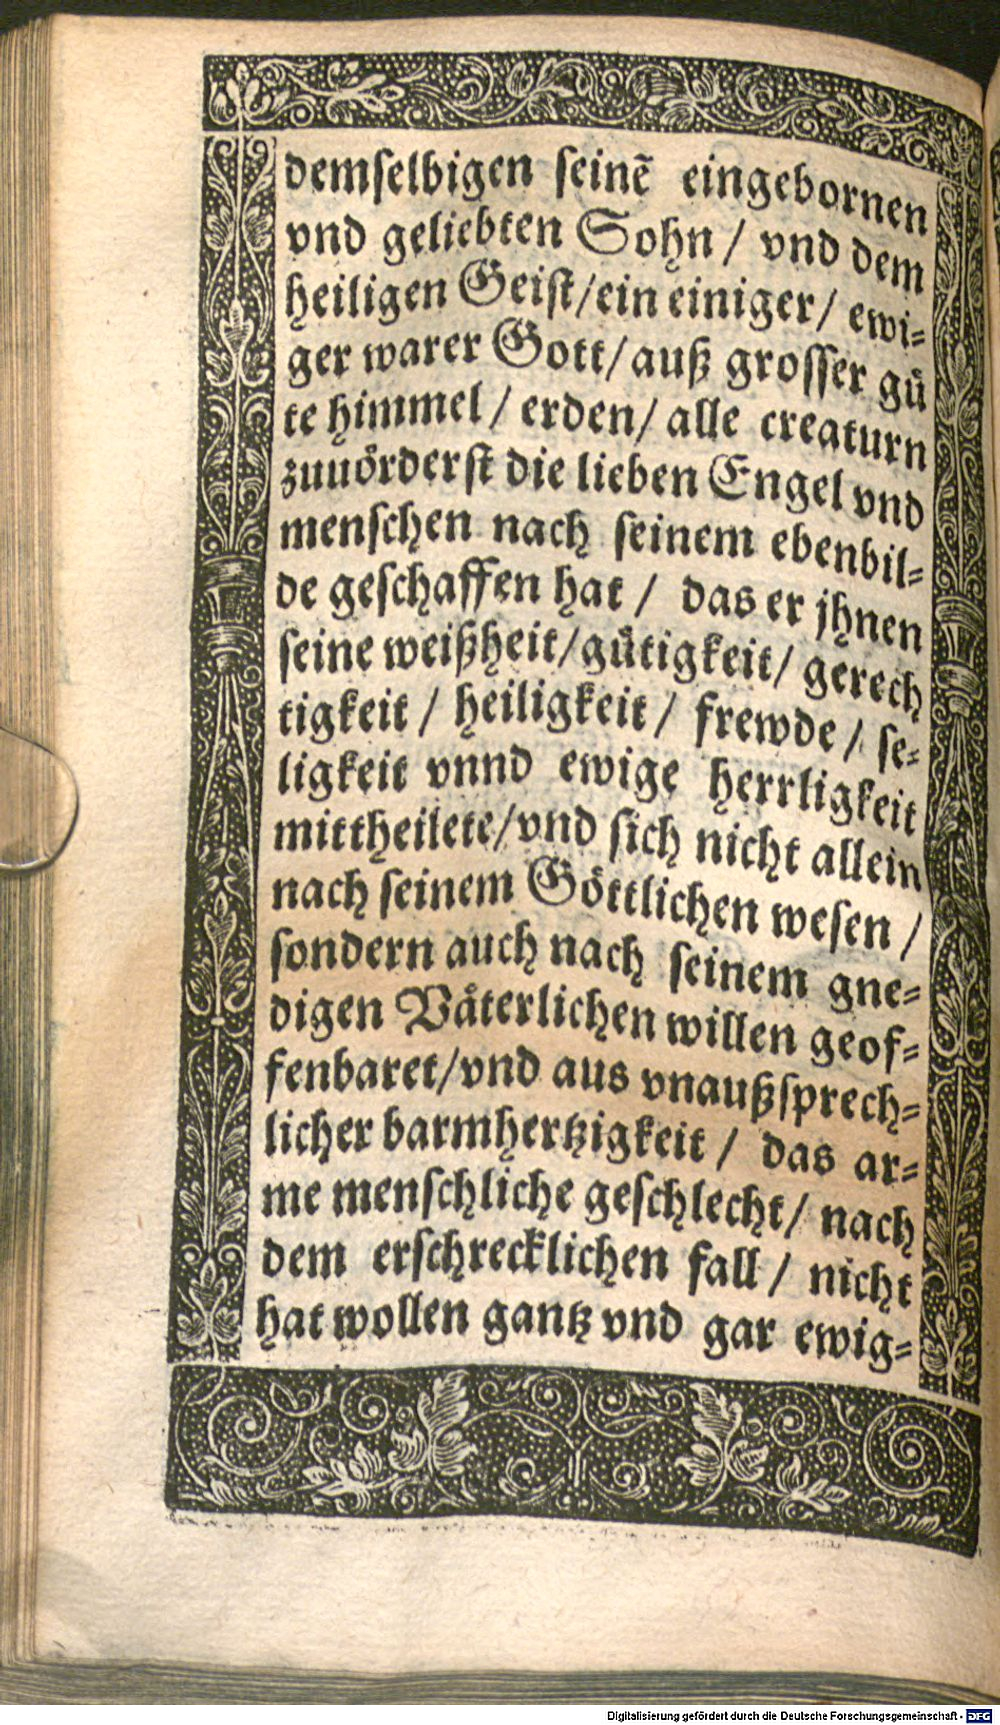 demſelbigen ſeinē eingebornen
vnd geliebten Sohn / vnd dem
heiligen Geiſt/ein einiger/ ewi⸗
ger warer Gott/auß groſſer guͤ
te himmel / erden/ alle creaturn
zuuoͤrderſt die lieben Engel vnd
menſchen nach ſeinem ebenbil⸗
de geſchaffen hat / das er jhnen
ſeine weißheit/guͤtigkeit/ gerech
tigkeit / heiligkeit / frewde / ſe⸗
ligkeit vnnd ewige herrligkeit
mittheilete/vnd ſich nicht allein
nach ſeinem Goͤttlichen weſen /
ſondern auch nach ſeinem gne⸗
digen Vaͤterlichen willen geof⸗
fenbaret/vnd aus vnaußſprech⸗
licher barmhertzigkeit / das ar⸗
me menſchliche geſchlecht/ nach
dem erſchrecklichen fall / nicht
hat wollen gantz vnd gar ewig⸗
Digitalisierung gefördert durch die Deutsche Forschungsgemeinschaft - DFG